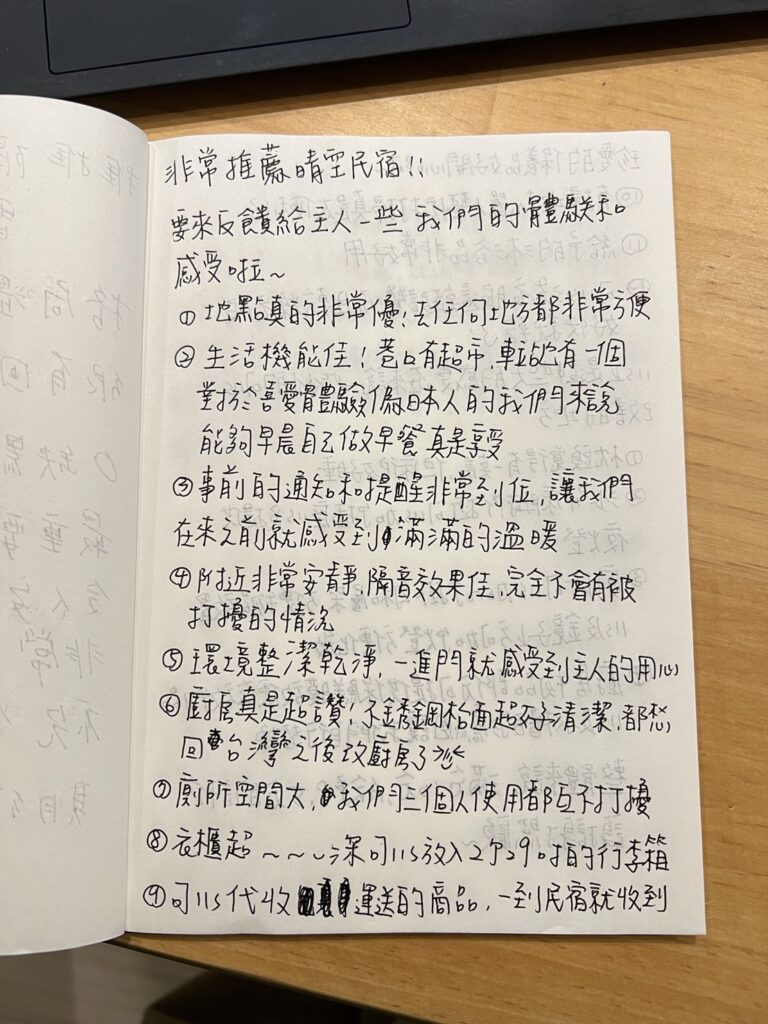 非常推薦晴空民宿!!
要來反饋給主人一些我們的體驗和
感受啦~
① 地點真的非常優!去任何地方都非常方便
② 生活機能佳!巷口有超市,車站也有一個
對於喜愛體驗偽日本人的我們來說
能夠早晨自己做早餐真是享受
③ 事前的通知和提醒非常到位,讓我們
在來之前就感受到滿滿的溫暖
④ 附近非常安靜,隔音效果佳,完全不會有被
打擾的情況
⑤ 環境整潔乾淨,一進門就感受到主人的用心
⑥ 廚房真是超讚!不銹鋼枱面超好清潔,都想
回台灣之後改廚房了
⑦ 廁所空間大,我們三個人使用都互不打擾
⑧ 衣櫃超~~~深可以放入2個29吋的行李箱
⑨ 可以代收運送的商品,一到民宿就收到